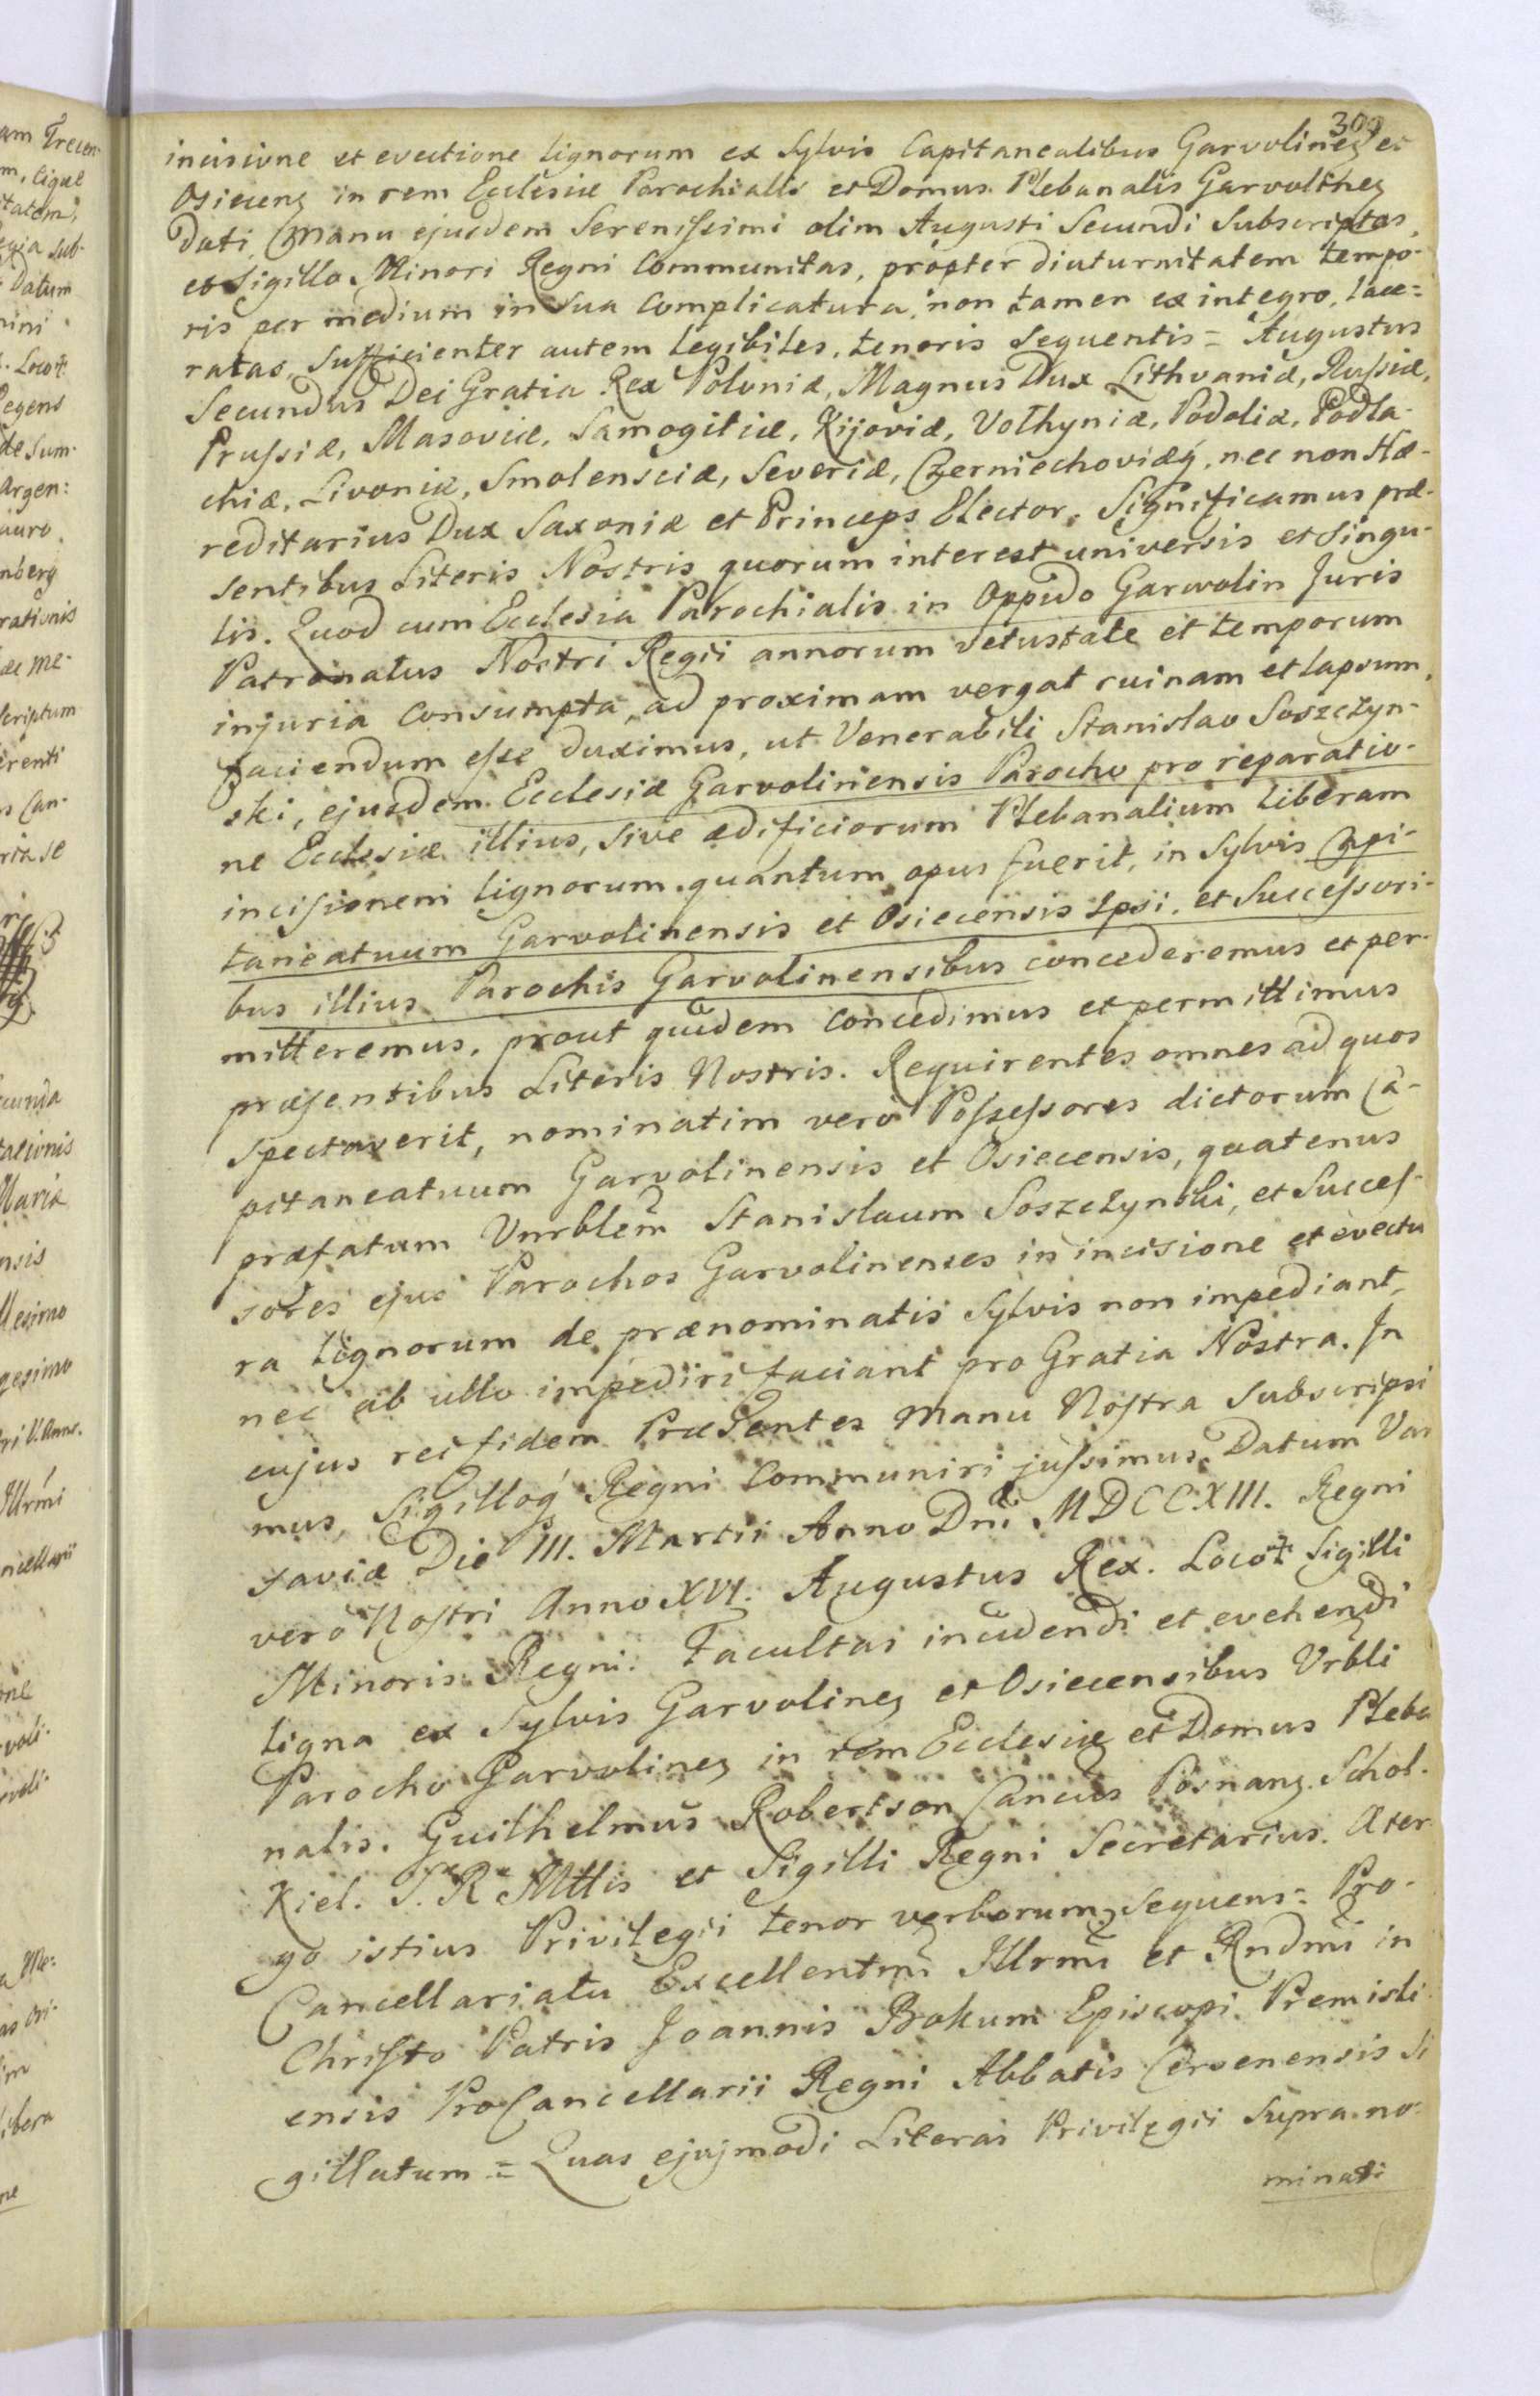 300
incisione et evectione lignorum ex Sylvis Capitanealibus Garvolineñ et
Osieceñ in rem Ecclesiæ Parochialis et Domus Plebanalis Garvolineñ
dati, Manu ejusdem Serenissimi olim Augusti Secundi Subscriptas,
et Sigillo Minori Regni Communitas, propter diuturnitatem tempo-
ris per medium in Sua Complicatura, non tamen ex integro, lace=
ratas, Sufficienter autem legibiles, tenoris Sequentis = Augustus
Secundus Dei Gratia Rex Poloniæ, Magnus Dux Lithvaniæ, Russiæ,
Prussiæ, Masoviæ, Samogitiæ, Kijoviæ, Volhyniæ, Podoliæ, Podla-
chiæ, Livoniæ, Smolensciæ, Severiæ, Czerniechoviæq́, nec non Hæ-
reditarius Dux Saxoniæ et Princeps Elector. Significamus præ-
sentibus Literis Nostris quorum interest universis et singu-
lis. Quod cum Ecclesia Parochialis in Oppido Garwolin Juris
Patronatus Nostri Regii annorum vetustate et temporum
injuria consumpta, ad proximam vergat ruinam et lapsum,
faciendum esse duximus, ut Venerabili Stanislao Soszczyn-
ski, ejusdem Ecclesiæ Garvolinensis Parocho pro reparatio-
ne Ecclesiæ illius, sive ædificiorum Plebanalium liberam
incisionem lignorum quantum opus fuerit, in Sylvis Capi-
taneatuum Garvolinensis et Osiecensis Ipsi, et Successori-
bus illius Parochis Garvolinensibus concederemus et per-
mitteremus, prout quidem concedimus et permittimus
præsentibus Literis Nostris. Requirentes omnes ad quos
spectaverit, nominatim vero Possessores dictorum Ca-
pitaneatuum Garvolinensis et Osiecensis, quatenus
præfatum Vnrblem̃ Stanislaum Soszczynski, et Succes-
sores ejus Parochos Garvolinenses in incisione et evectu
ra Lignorum de prænominatis Sylvis non impediant,
nec ab ullo impediri faciant pro Gratia Nostra. In
cujus rei fidem Præsentes Manu Nostra Subscripsi
mus, Sigilloq́ Regni Communiri jussimus. Datum Var
saviæ Die III. Martii Anno Dñi MDCCXIII. Regni
vero Nostri Anno XVI. Augustus Rex. Loco ✝ Sigilli
Minoris Regni. Facultas incidendi et evehendi
Ligna ex Sylvis Garvolineñ et Osiecensibus Vrbli
Parocho Garvolineñ in rem Ecclesiæ et Domus Pleba
nalis. Guilhelmus Robertson Cancus Posnanñ. Schol.
Kiel. S. R. Mttis et Sigilli Regni Secretarius. A ter
go istius Privilegii tenor verborum Sequens = Pro-
Cancellariatu Excellentmi Illrmi et Rndmi in
Christo Patris Joannis Bokum Episcopi Premisli
ensis ProCancellarii Regni Abbatis Cervenensis Si
gillatum = Quas ejusmodi Literas Privilegii Supra no-
minati